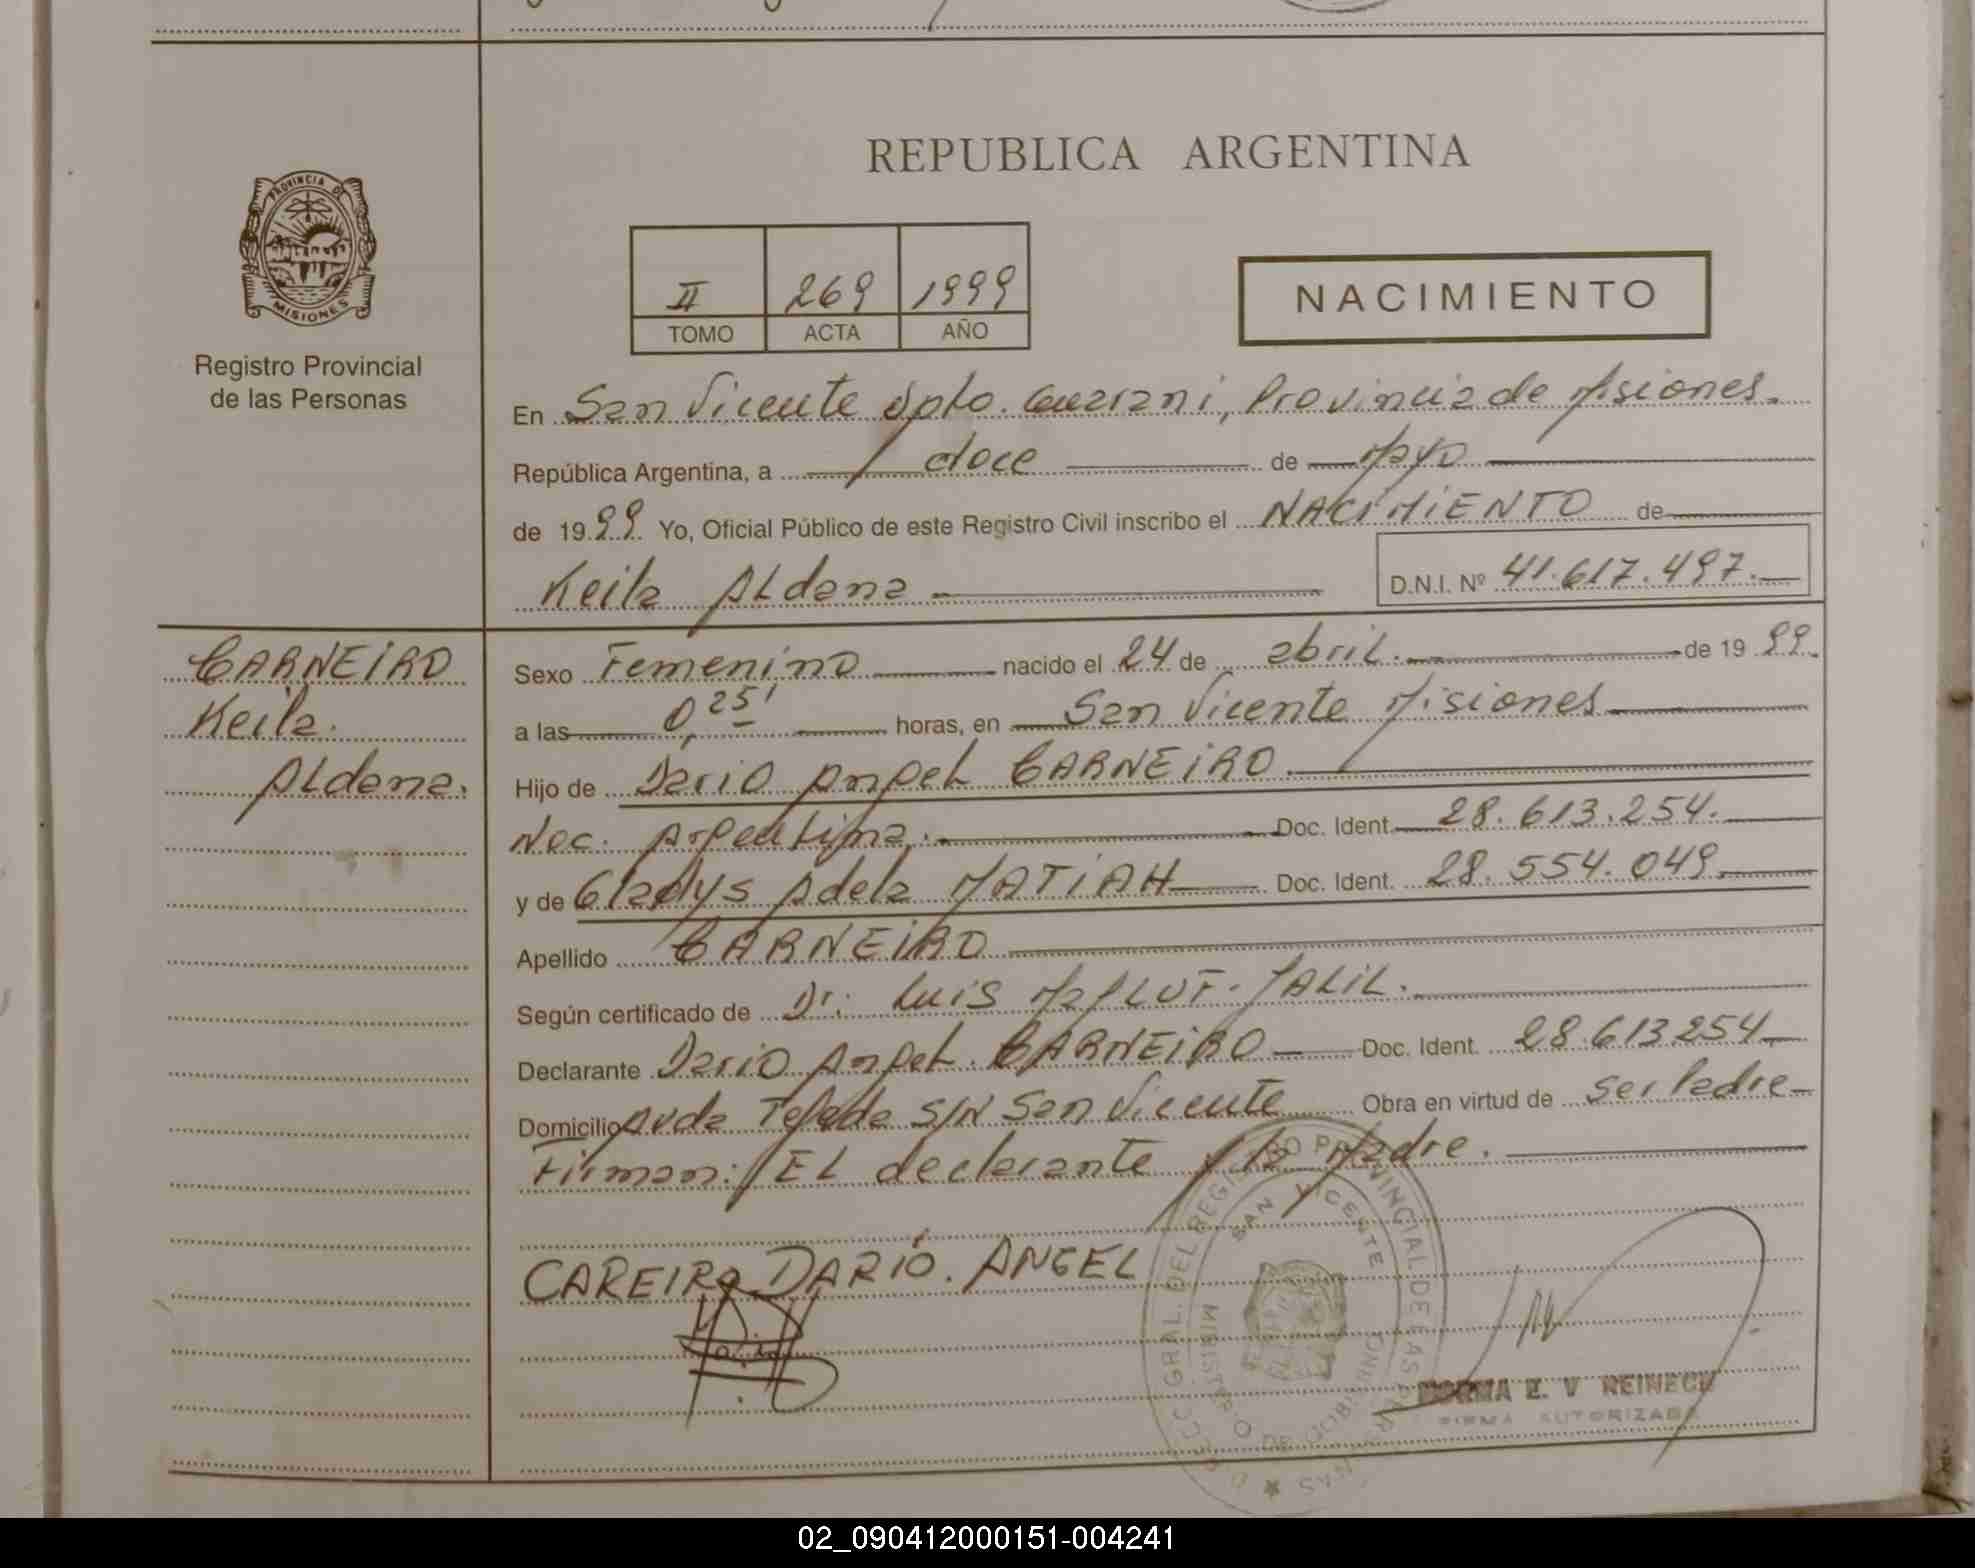 REPUBLICA ARGENTINA
PROVINCIA DE
MISIONES
Registro Provincial
de las Personas
II 269 1999
TOMO ACTA AÑO
NACIMIENTO
En San Vicente Dpto. Guarani, Provincia de Misiones.
República Argentina, a doce de Mayo
de 1999 Yo, Oficial Público de este Registro Civil inscribo el NACIMIENTO de
Keila Aldana D.N.I. Nº 41.617.497.
CARNEIRO
Keila.
Aldana.
Sexo Femenino nacido el 24 de abril. de 1999.
a las 0,25' horas, en San Vicente Misiones
Hijo de Dario Angel CARNEIRO.
Nac. Argentina. Doc. Ident. 28.613.254.
y de Gladys Adela MATIAH Doc. Ident. 28.554.049.
Apellido CARNEIRO
Según certificado de Dr. Luis JALIL.
Declarante Dario Angel. CARNEIRO Doc. Ident. 28.613254
Domicilio Avda Tejeda S/N San Vicente Obra en virtud de ser Padre
Firman: EL declarante y la Madre.
CAREIRO DARIO. ANGEL
SAN VICENTE
NORMA E. V REINECK
FIRMA AUTORIZADA
02_090412000151-004241